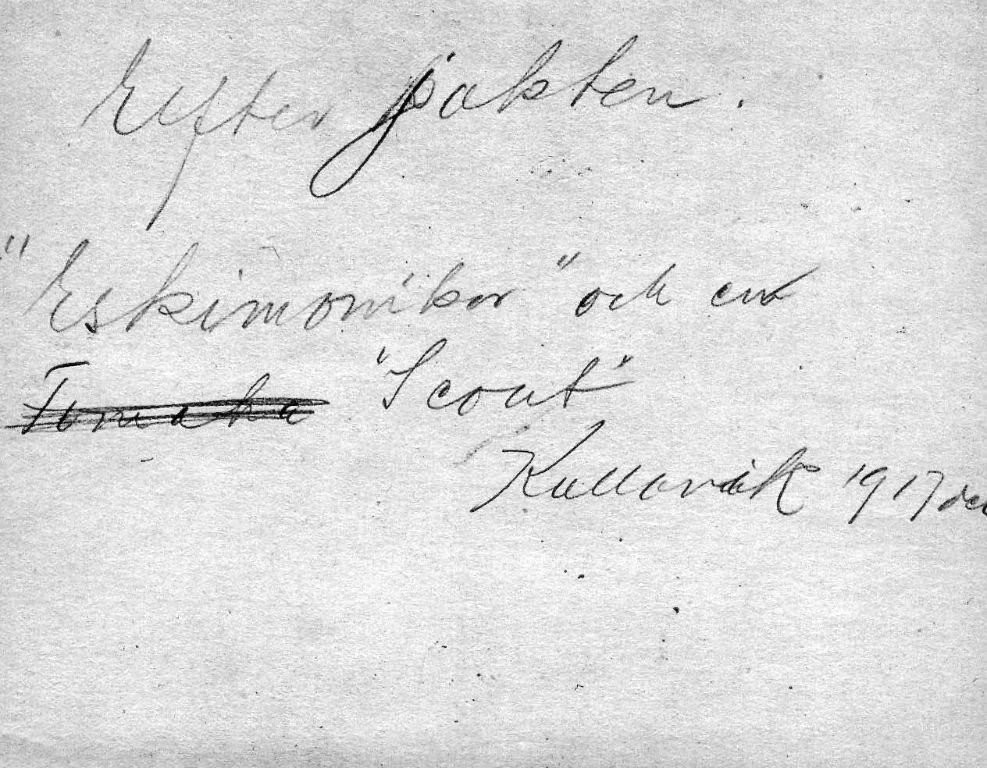 Efter jakten.
"Eskimonikor" och en
"Scout"
Kullavik 1917